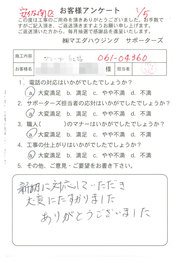 お客様アンケート
この度は工事のご用命を頂きありがとうございました。お手数で
すがご記入頂き、ご返送頂きますようお願い申し上げます。
ご返送頂いた方から、毎月抽選で感謝品を進呈いたします。
㈱マエダハウジング サポーターズ
061-04360
様
担当者
1. 電話の対応はいかがでしたでしょうか？
a 大変満足 b 満足 c やや不満 d 不満
2. サポーターズ担当者の応対はいかがでしたでしょうか？
a 大変満足 b 満足 c やや不満 d 不満
3. 職人( )のマナーはいかがでしたでしょうか？
a 大変満足 b 満足 c やや不満 d 不満
4. 工事の品質はいかがでしたでしょうか？
a 大変満足 b 満足 c やや不満 d 不満
5. その他、ご意見・ご要望をお書き下さい。
に対応していただき
大変にたすかりました
ありがとうございました